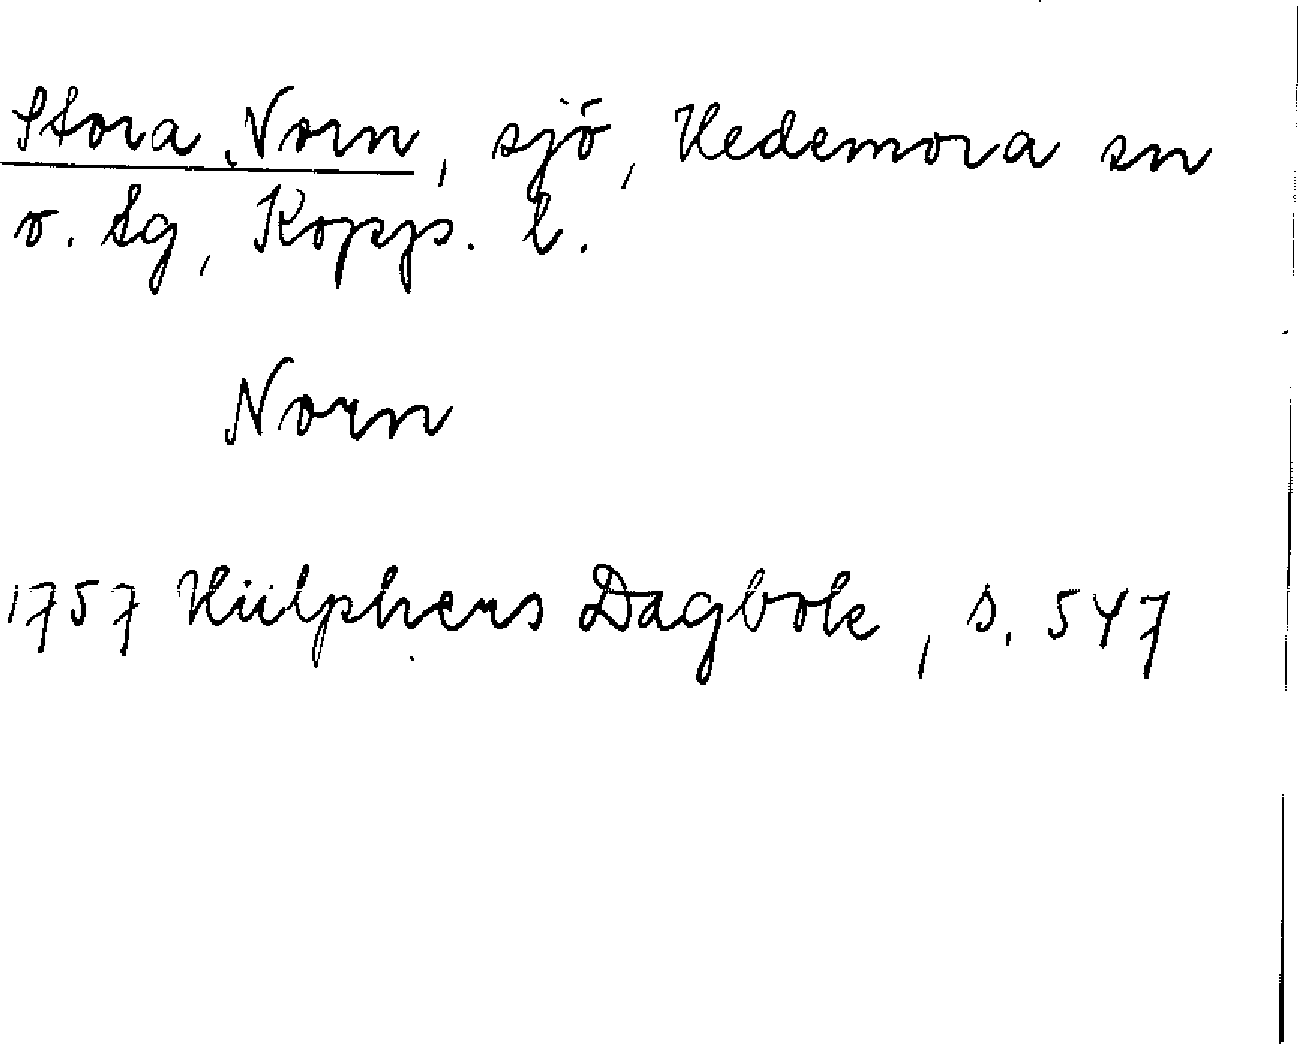 Stora Norn, sjö, Hedemora sn
o. tg, Kopp. l.
Norn
1757 Hülphers Dagbok, s. 547